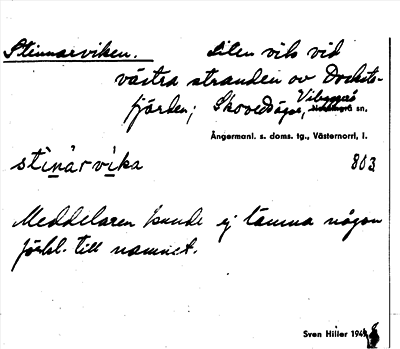 Stinnarviken. Liten vik vid
västra stranden av Docksta-
fjärden; Skovedsågen, Vibyggerå sn.
Ångermanl. s. doms. tg., Västernorrl. l.
stinàrvika 803
Meddelaren kunde ej lämna någon
förkl. till namnet.
Sven Hiller 194